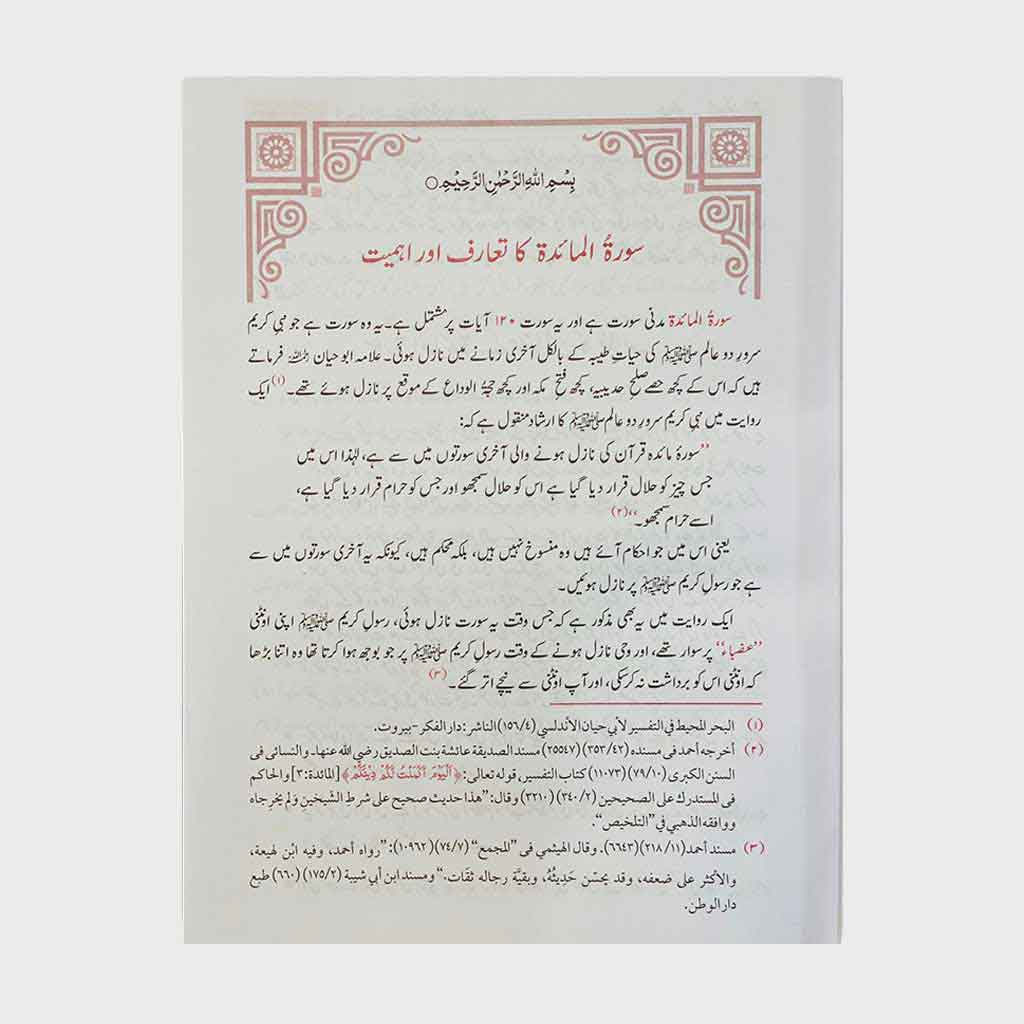 بِسْمِ اللّٰهِ الرَّحْمٰنِ الرَّحِيْمِ○
سورۃُ المائدۃ کا تعارف اور اہمیت
سورۃُ المائدۃ مدنی سورت ہے اور یہ سورت ۱۲۰ آیات پر مشتمل ہے۔ یہ وہ سورت ہے جو نبی کریم
سرورِ دو عالم ﷺ کی حیاتِ طیبہ کے بالکل آخری زمانے میں نازل ہوئی۔ علامہ ابو حیان رحمہ اللہ فرماتے
ہیں کہ اس کے کچھ حصے صلحِ حدیبیہ، کچھ فتحِ مکہ اور کچھ حجۃُ الوداع کے موقع پر نازل ہوئے تھے۔(۱) ایک
روایت میں نبی کریم سرورِ دو عالم ﷺ کا ارشاد منقول ہے کہ:
”سورۂ مائدہ قرآن کی نازل ہونے والی آخری سورتوں میں سے ہے، لہٰذا اس میں
جس چیز کو حلال قرار دیا گیا ہے اس کو حلال سمجھو اور جس کو حرام قرار دیا گیا ہے،
اسے حرام سمجھو۔“(۲)
یعنی اس میں جو احکام آئے ہیں وہ منسوخ نہیں ہیں، بلکہ محکم ہیں، کیونکہ یہ آخری سورتوں میں سے
ہے جو رسولِ کریم ﷺ پر نازل ہوئیں۔
ایک روایت میں یہ بھی مذکور ہے کہ جس وقت یہ سورت نازل ہوئی، رسولِ کریم ﷺ اپنی اونٹنی
”عضباء“ پر سوار تھے، اور وحی نازل ہونے کے وقت رسولِ کریم ﷺ پر جو بوجھ ہوا کرتا تھا وہ اتنا بڑھا
کہ اونٹنی اس کو برداشت نہ کرسکی، اور آپ اونٹنی سے نیچے اتر گئے۔(۳)
(۱) البحر المحيط في التفسير لأبي حيان الأندلسي (۱۵۶/۴) الناشر: دار الفكر - بيروت.
(۲) أخرجه أحمد فى مسنده (۳۵۳/۴۲) (۲۵۵۴۷) مسند الصديقة عائشة بنت الصديق رضي الله عنها۔ والنسائى فى
السنن الكبرى (۷۹/۱۰) (۱۱۰۷۳) كتاب التفسير، قوله تعالى: ﴿اَلْيَوْمَ اَكْمَلْتُ لَكُمْ دِيْنَكُمْ﴾ [المائدة:۳] والحاكم
فى المستدرك على الصحيحين (۳۴۰/۲) (۳۲۱۰) وقال: ”هذا حديث صحيح على شرط الشيخين ولم يخرجاه
ووافقه الذهبي في ”التلخيص“.
(۳) مسند أحمد (۲۱۸/۱۱) (۶۶۴۳). وقال الهيثمي فى ”المجمع“ (۷۴/۷) (۱۰۹۶۲): ”رواه أحمد، وفيه ابْن لهيعة،
والأكثر على ضعفه، وقد يحسّن حَدِيثُهُ، وبقيَّة رجاله ثقَات.“ ومسند ابن أبي شيبة (۱۷۵/۲) (۶۶۰) طبع
دار الوطن.